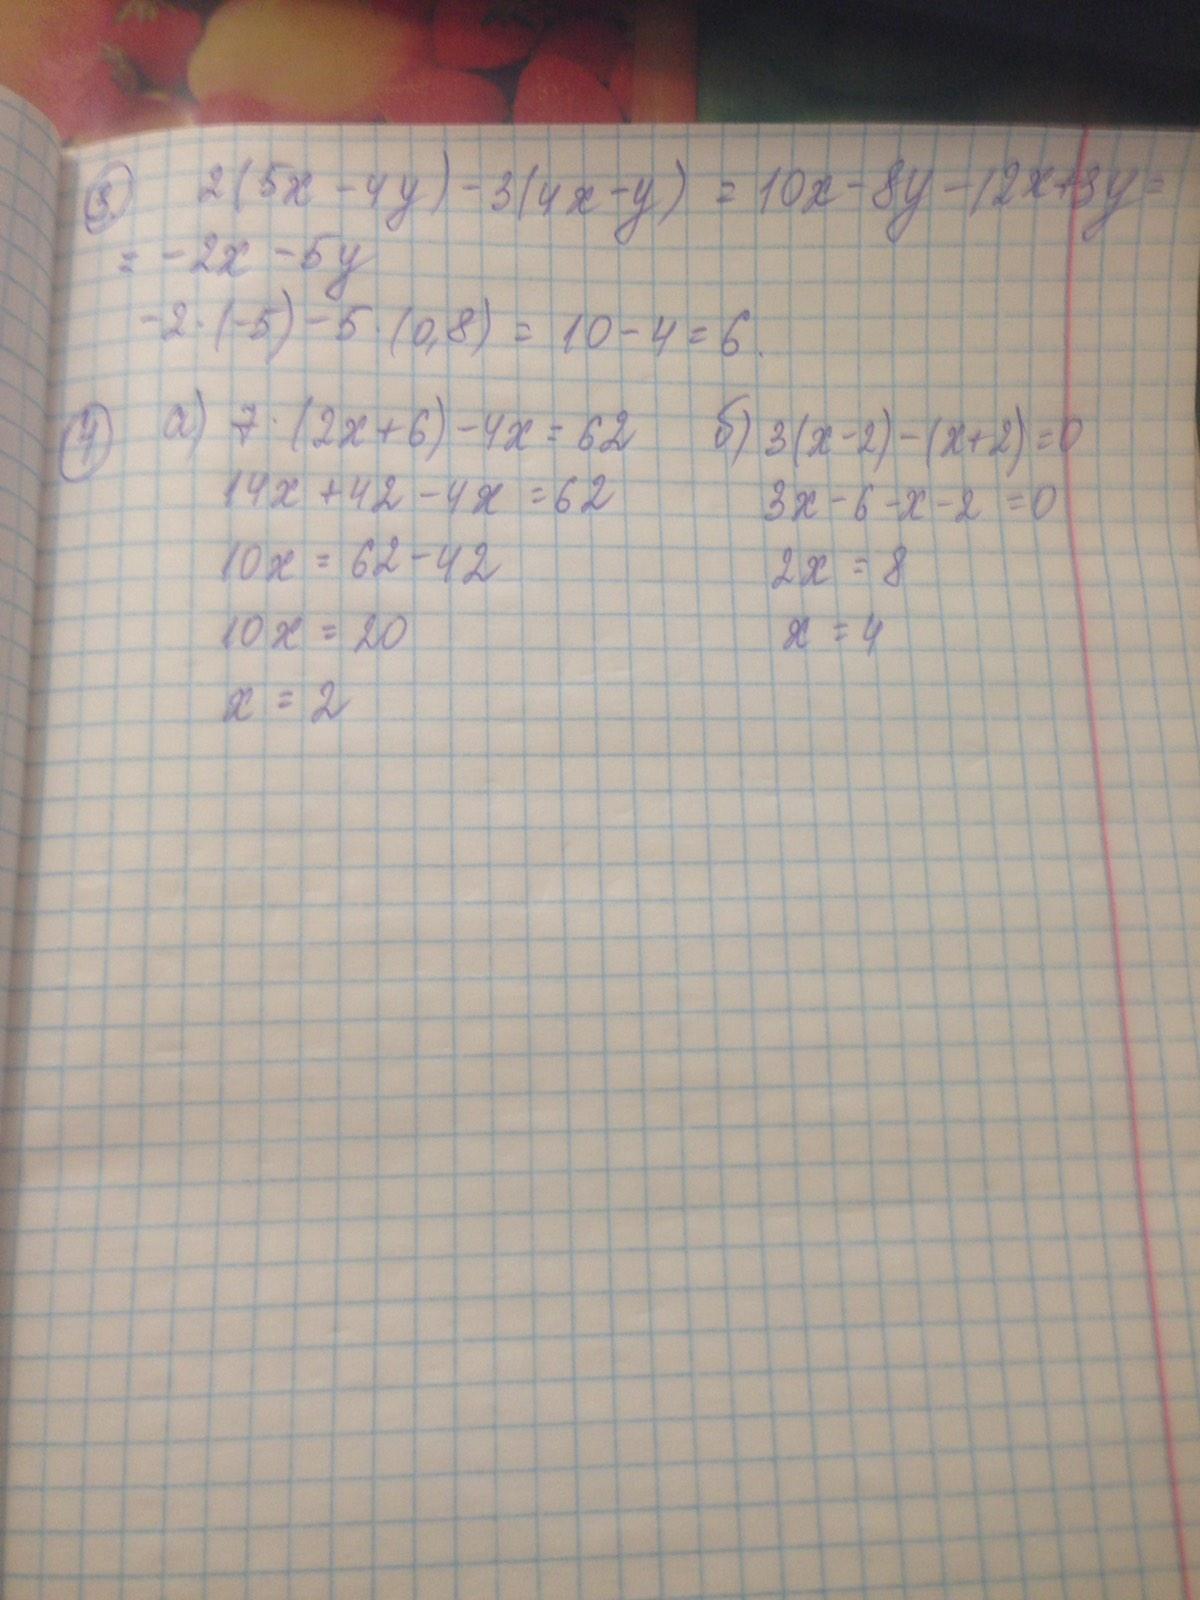 3) 2(5x - 4y) - 3(4x - y) = 10x - 8y - 12x + 3y =
= -2x - 5y
-2·(-5) - 5·(0,8) = 10 - 4 = 6.
4) а) 7·(2x + 6) - 4x = 62
14x + 42 - 4x = 62
10x = 62 - 42
10x = 20
x = 2
б) 3(x - 2) - (x + 2) = 0
3x - 6 - x - 2 = 0
2x = 8
x = 4